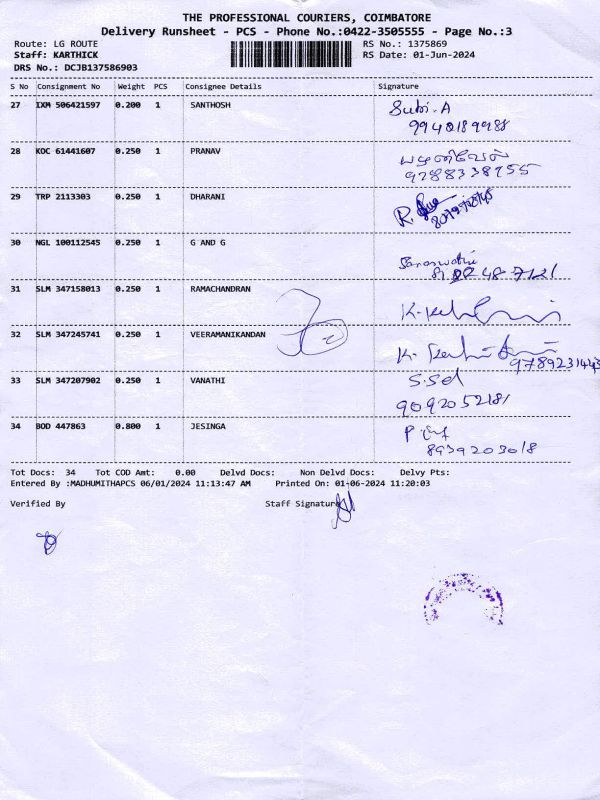 THE PROFESSIONAL COURIERS, COIMBATORE
Delivery Runsheet - PCS - Phone No.:0422-3505555 - Page No.:3
Route: LG ROUTE RS No.: 1375869
Staff: KARTHICK RS Date: 01-Jun-2024
DRS No.: DCJB137586903
S No Consignment No Weight PCS Consignee Details Signature
27 IXM 506421597 0.200 1 SANTHOSH Subi.A
9940189988
28 KOC 61441607 0.250 1 PRANAV
9788338755
29 TRP 2113303 0.250 1 DHARANI R.
30 NGL 100112545 0.250 1 G AND G Saraswathi
31 SLM 347158013 0.250 1 RAMACHANDRAN K.
32 SLM 347245741 0.250 1 VEERAMANIKANDAN K.
33 SLM 347207902 0.250 1 VANATHI S.Sel
9092052181
34 BOD 447863 0.800 1 JESINGA P.
8939203018
Tot Docs: 34 Tot COD Amt: 0.00 Delvd Docs: Non Delvd Docs: Delvy Pts:
Entered By :MADHUMITHAPCS 06/01/2024 11:13:47 AM Printed On: 01-06-2024 11:20:03
Verified By Staff Signature